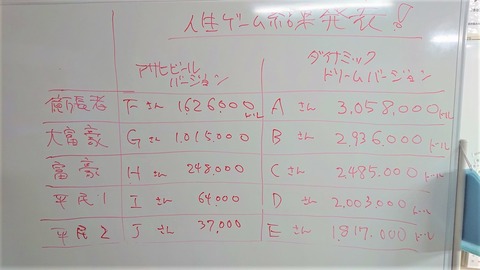 人生ゲーム結果発表!
アサヒビール
バージョン
ダイナミック
ドリームバージョン
億万長者 Fさん 1,626,000ドル Aさん 3,058,000ドル
大富豪 Gさん 1,015,000ドル Bさん 2,936,000ドル
富豪 Hさん 248,000 Cさん 2,485,000ドル
平民1 Iさん 64,000 Dさん 2,003,000ドル
平民2 Jさん 37,000 Eさん 1,817,000ドル